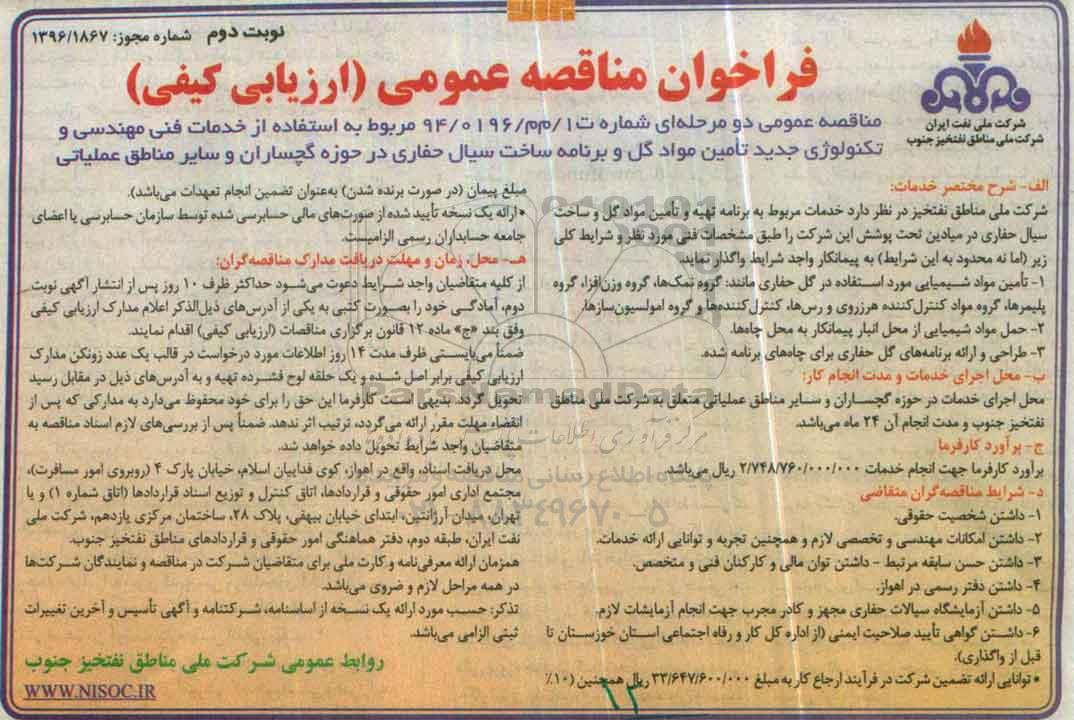 نوبت دوم   شماره مجوز: ۱۳۹۶/۱۸۶۷
فراخوان مناقصه عمومی (ارزیابی کیفی)
شرکت ملی نفت ایران
شرکت ملی مناطق نفتخیز جنوب
مناقصه عمومی دو مرحله‌ای شماره ت۱/م‌م/۹۴/۰۱۹۶ مربوط به استفاده از خدمات فنی مهندسی و
تکنولوژی جدید تأمین مواد گل و برنامه ساخت سیال حفاری در حوزه گچساران و سایر مناطق عملیاتی
الف- شرح مختصر خدمات:
شرکت ملی مناطق نفتخیز در نظر دارد خدمات مربوط به برنامه تهیه و تأمین مواد گل و ساخت
سیال حفاری در میادین تحت پوشش این شرکت را طبق مشخصات فنی مورد نظر و شرایط کلی
زیر (اما نه محدود به این شرایط) به پیمانکار واجد شرایط واگذار نماید.
۱- تأمین مواد شیمیایی مورد استفاده در گل حفاری مانند: گروه نمک‌ها، گروه وزن‌افزا، گروه
پلیمرها، گروه مواد کنترل‌کننده هرزروی و رس‌ها، کنترل‌کننده‌ها و گروه امولسیون‌سازها.
۲- حمل مواد شیمیایی از محل انبار پیمانکار به محل چاه‌ها.
۳- طراحی و ارائه برنامه‌های گل حفاری برای چاه‌های برنامه شده.
ب- محل اجرای خدمات و مدت انجام کار:
محل اجرای خدمات در حوزه گچساران و سایر مناطق عملیاتی متعلق به شرکت ملی مناطق
نفتخیز جنوب و مدت انجام آن ۲۴ ماه می‌باشد.
ج- برآورد کارفرما
برآورد کارفرما جهت انجام خدمات ۲/۷۴۸/۷۶۰/۰۰۰/۰۰۰ ریال می‌باشد.
د- شرایط مناقصه‌گران متقاضی
۱- داشتن شخصیت حقوقی.
۲- داشتن امکانات مهندسی و تخصصی لازم و همچنین تجربه و توانایی ارائه خدمات.
۳- داشتن حسن سابقه مرتبط - داشتن توان مالی و کارکنان فنی و متخصص.
۴- داشتن دفتر رسمی در اهواز.
۵- داشتن آزمایشگاه سیالات حفاری مجهز و کادر مجرب جهت انجام آزمایشات لازم.
۶- داشتن گواهی تأیید صلاحیت ایمنی (از اداره کل کار و رفاه اجتماعی استان خوزستان تا
قبل از واگذاری).
• توانایی ارائه تضمین شرکت در فرآیند ارجاع کار به مبلغ ۳۳/۶۴۷/۶۰۰/۰۰۰ ریال همچنین (۱۰٪
مبلغ پیمان (در صورت برنده شدن) به‌عنوان تضمین انجام تعهدات می‌باشد).
• ارائه یک نسخه تأیید شده از صورت‌های مالی حسابرسی شده توسط سازمان حسابرسی یا اعضای
جامعه حسابداران رسمی الزامیست.
هـ- محل، زمان و مهلت دریافت مدارک مناقصه‌گران:
از کلیه متقاضیان واجد شرایط دعوت می‌شود حداکثر ظرف ۱۰ روز پس از انتشار آگهی نوبت
دوم، آمادگی خود را بصورت کتبی به یکی از آدرس‌های ذیل‌الذکر اعلام مدارک ارزیابی کیفی
وفق بند «ج» ماده ۱۲ قانون برگزاری مناقصات (ارزیابی کیفی) اقدام نمایند.
ضمناً می‌بایستی ظرف مدت ۱۴ روز اطلاعات مورد درخواست در قالب یک عدد زونکن مدارک
ارزیابی کیفی برابر اصل شده و یک حلقه لوح فشرده تهیه و به آدرس‌های ذیل در مقابل رسید
تحویل گردد. بدیهی است کارفرما این حق را برای خود محفوظ می‌دارد به مدارکی که پس از
انقضاء مهلت مقرر ارائه می‌گردد، ترتیب اثر ندهد. ضمناً پس از بررسی‌های لازم اسناد مناقصه به
متقاضیان واجد شرایط تحویل داده خواهد شد.
محل دریافت اسناد، واقع در اهواز، کوی فداییان اسلام، خیابان پارک ۴ (روبروی امور مسافرت)،
مجتمع اداری امور حقوقی و قراردادها، اتاق کنترل و توزیع اسناد قراردادها (اتاق شماره ۱) و یا
تهران، میدان آرژانتین، ابتدای خیابان بیهقی، پلاک ۲۸، ساختمان مرکزی یازدهم، شرکت ملی
نفت ایران، طبقه دوم، دفتر هماهنگی امور حقوقی و قراردادهای مناطق نفتخیز جنوب.
همزمان ارائه معرفی‌نامه و کارت ملی برای متقاضیان شرکت در مناقصه و نمایندگان شرکت‌ها
در همه مراحل لازم و ضروی می‌باشد.
تذکر: حسب مورد ارائه یک نسخه از اساسنامه، شرکتنامه و آگهی تأسیس و آخرین تغییرات
ثبتی الزامی می‌باشد.
روابط عمومی شرکت ملی مناطق نفتخیز جنوب
WWW.NISOC.IR
ParsNamadData
۰۲۱-۸۸۳۴۹۶۷۰-۵
۱۲